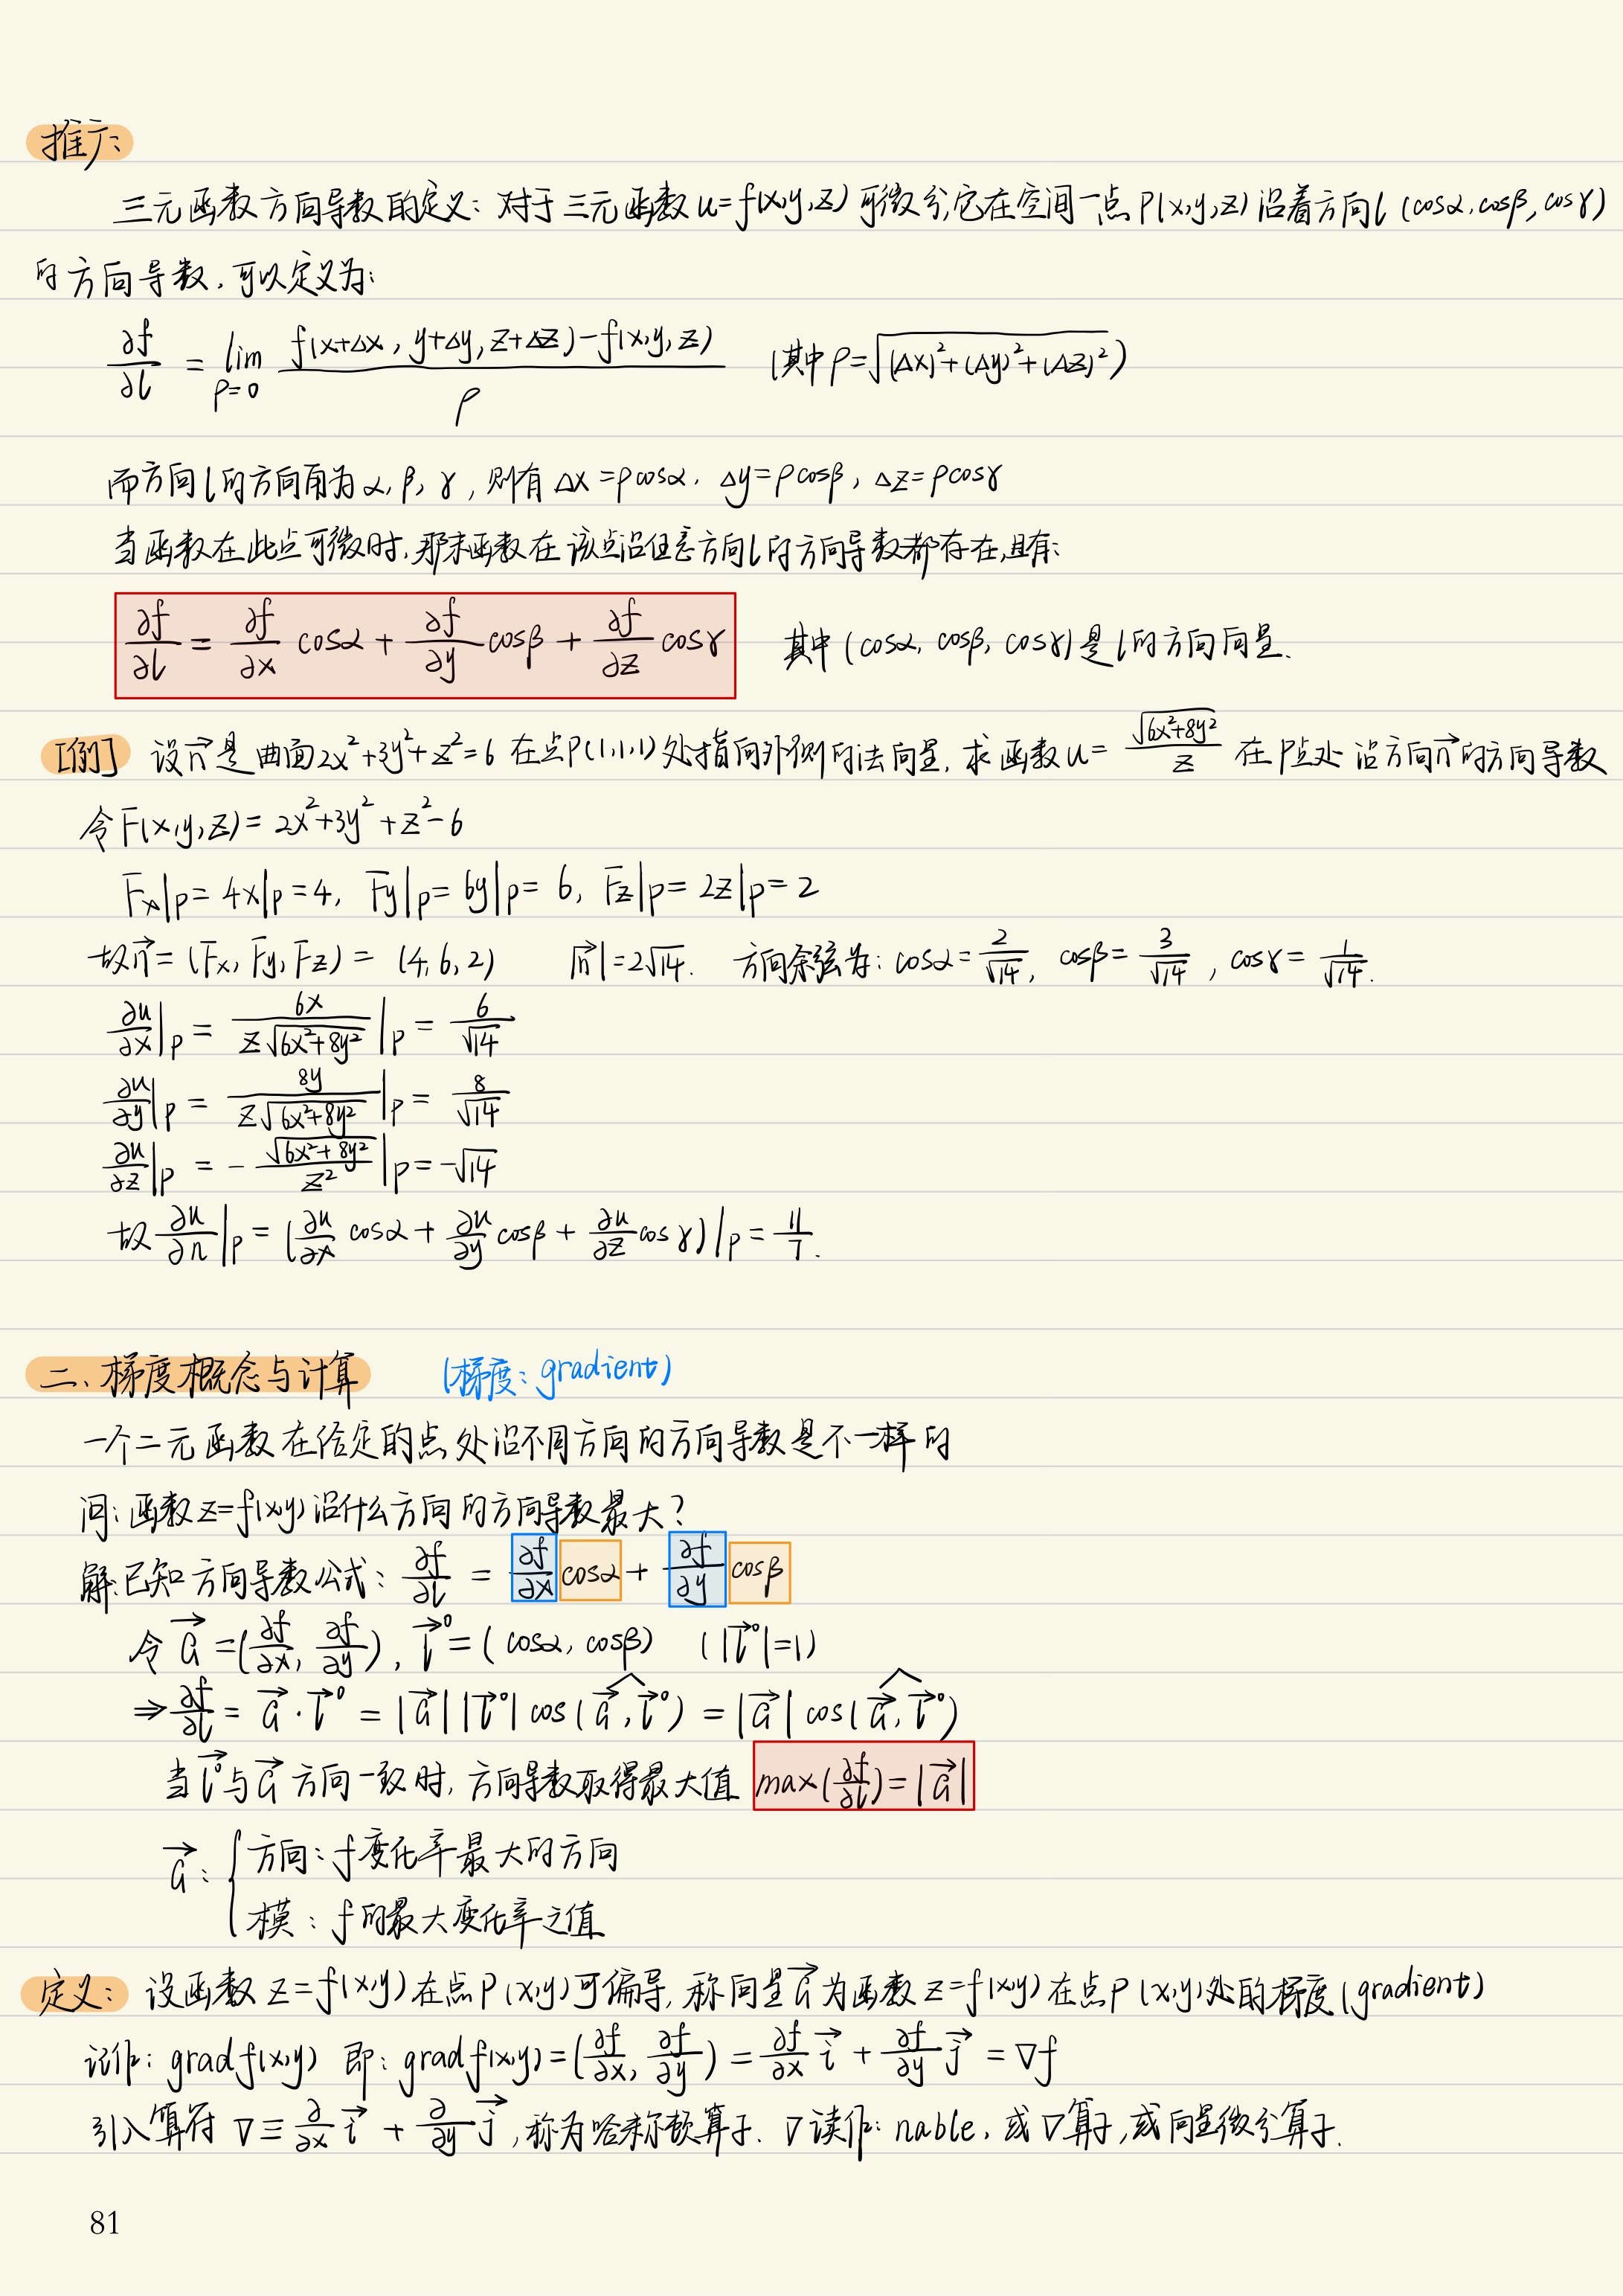 推广:
三元函数方向导数的定义: 对于三元函数 u=f(x,y,z) 可微分,它在空间一点 P(x,y,z) 沿着方向l (cosα, cosβ, cosγ)
的方向导数, 可以定义为:
∂f/∂l = lim ρ=0 (f(x+Δx, y+Δy, z+Δz)-f(x,y,z))/ρ (其中 ρ=√((Δx)²+(Δy)²+(Δz)²))
而方向l的方向角为 α, β, γ, 则有 Δx=ρcosα, Δy=ρcosβ, Δz=ρcosγ
当函数在此点可微时, 那末函数在该点沿任意方向l的方向导数都存在,且有:
∂f/∂l = ∂f/∂x cosα + ∂f/∂y cosβ + ∂f/∂z cosγ 其中 (cosα, cosβ, cosγ)是l的方向向量.
[例] 设n⃗是曲面2x²+3y²+z²=6 在点P(1,1,1)处指向外侧的法向量, 求函数u=√(6x²+8y²)/z 在P点处沿方向n⃗的方向导数
令F(x,y,z)= 2x²+3y²+z²-6
Fx|p = 4x|p = 4, Fy|p = 6y|p = 6, Fz|p = 2z|p = 2
故n⃗ = (Fx, Fy, Fz) = (4, 6, 2) |n⃗|=2√14. 方向余弦为: cosα=2/√14, cosβ=3/√14, cosγ=1/√14.
∂u/∂x|p = 6x/(z√(6x²+8y²))|p = 6/√14
∂u/∂y|p = 8y/(z√(6x²+8y²))|p = 8/√14
∂u/∂z|p = -√(6x²+8y²)/z²|p = -√14
故 ∂u/∂n|p = (∂u/∂x cosα + ∂u/∂y cosβ + ∂u/∂z cosγ)|p = 11/7.
二、梯度概念与计算 (梯度: gradient)
一个二元函数在给定的点处沿不同方向的方向导数是不一样的
问: 函数z=f(x,y)沿什么方向的方向导数最大?
解:已知方向导数公式: ∂f/∂l = ∂f/∂x cosα + ∂f/∂y cosβ
令 G⃗ =(∂f/∂x, ∂f/∂y), l⃗⁰=(cosα, cosβ) (|l⃗⁰|=1)
⇒ ∂f/∂l = G⃗·l⃗⁰ = |G⃗||l⃗⁰| cos(G⃗,l⃗⁰) = |G⃗| cos(G⃗,l⃗⁰)
当 l⃗⁰与G⃗方向一致时, 方向导数取得最大值 max(∂f/∂l)=|G⃗|
G⃗: { 方向: f变化率最大的方向
模: f的最大变化率之值
定义: 设函数 z=f(x,y)在点P(x,y)可偏导, 称向量G⃗为函数z=f(x,y)在点P(x,y)处的梯度(gradient)
记作: gradf(x,y) 即: gradf(x,y)=(∂f/∂x, ∂f/∂y) = ∂f/∂x i⃗ + ∂f/∂y j⃗ = ∇f
引入算符 ∇≡∂/∂x i⃗ + ∂/∂y j⃗, 称为哈密顿算子. ∇读作: nable, 或∇算子,或向量微分算子.
81